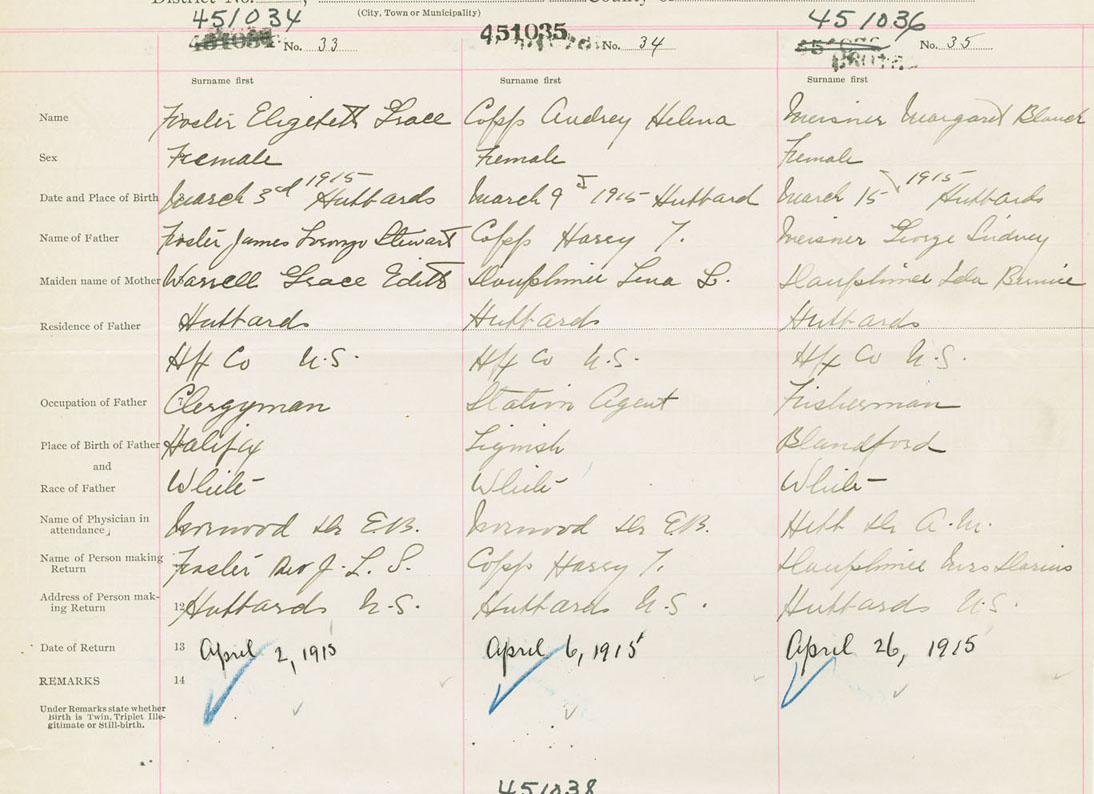 District No. , County of
(City, Town or Municipality)
451034 451035 451036
No. 33 No. 34 No. 35
Surname first Surname first Surname first
Name Foster Elizebeth Grace Copp Audrey Helena Meisner Margaret Blanch
Sex Female Female Female
Date and Place of Birth March 3rd 1915 Hubbards March 9 1915 Hubbard March 15 1915 Hubbards
Name of Father Foster James Lorenzo Stewart Copp Harry T. Meisner George Sidney
Maiden name of Mother Warrell Grace Edith Dauphinee Lena L. Dauphinee Ida Bernice
Residence of Father Hubbards Hubbards Hubbards
Hfx Co N.S. Hfx Co N.S. Hfx Co N.S.
Occupation of Father 7 Clergyman Station Agent Fisherman
Place of Birth of Father Halifax Tignish Blandford
and
Race of Father White White White
Name of Physician in
attendance, Dr E.B. Dr E.B. Hebb Dr A.M.
Name of Person making
Return Foster Rev J. L. S. Copp Harry T. Dauphinee Mrs Darius
Address of Person mak-
ing Return 12 Hubbards N.S. Hubbards N.S. Hubbards N.S.
Date of Return 13 April 2, 1915 April 6, 1915 April 26, 1915
REMARKS 14
Under Remarks state whether
Birth is Twin, Triplet Ille-
gitimate or Still-birth.
451038